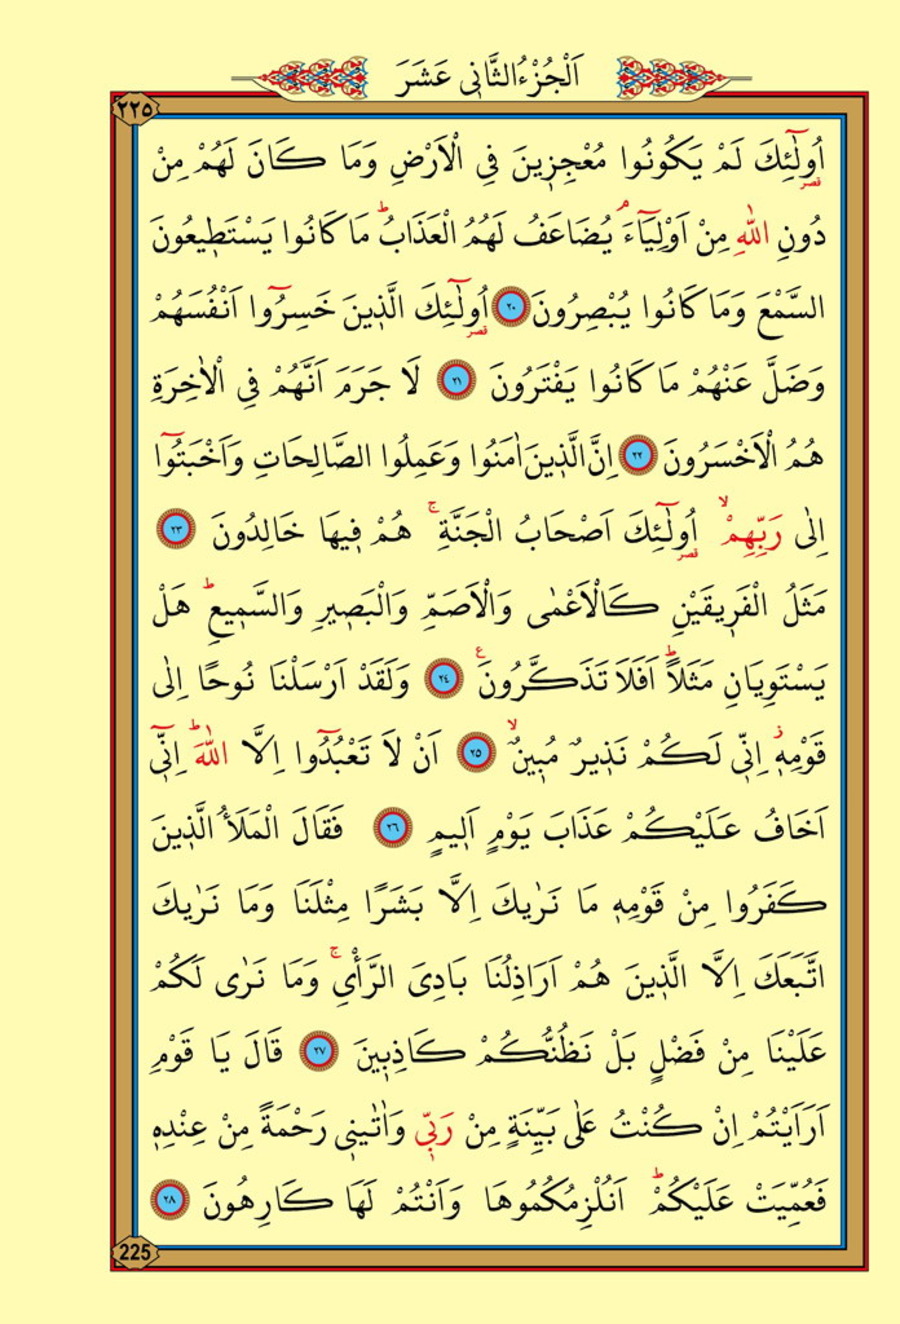 اَلْجُزْءُ الثَّانٖى عَشَرَ
٢٢٥
اُو۬لٰٓئِكَ لَمْ يَكُونُوا مُعْجِزٖينَ فِي الْاَرْضِ وَمَا كَانَ لَهُمْ مِنْ
قصر
دُونِ اللّٰهِ مِنْ اَوْلِيَٓاءَۢ يُضَاعَفُ لَهُمُ الْعَذَابُؕ مَا كَانُوا يَسْتَطٖيعُونَ
السَّمْعَ وَمَا كَانُوا يُبْصِرُونَ ٢٠ اُو۬لٰٓئِكَ الَّذٖينَ خَسِرُٓوا اَنْفُسَهُمْ
قصر
وَضَلَّ عَنْهُمْ مَا كَانُوا يَفْتَرُونَ ٢١ لَا جَرَمَ اَنَّهُمْ فِي الْاٰخِرَةِ
هُمُ الْاَخْسَرُونَ ٢٢ اِنَّ الَّذٖينَ اٰمَنُوا وَعَمِلُوا الصَّالِحَاتِ وَاَخْبَتُٓوا
اِلٰى رَبِّهِمْۙ اُو۬لٰٓئِكَ اَصْحَابُ الْجَنَّةِۚ هُمْ فٖيهَا خَالِدُونَ ٢٣
قصر
مَثَلُ الْفَرٖيقَيْنِ كَالْاَعْمٰى وَالْاَصَمِّ وَالْبَصٖيرِ وَالسَّمٖيعِؕ هَلْ
يَسْتَوِيَانِ مَثَلًاؕ اَفَلَا تَذَكَّرُونَ ع ٢٤ وَلَقَدْ اَرْسَلْنَا نُوحًا اِلٰى
قَوْمِهٖؗ اِنّٖي لَكُمْ نَذٖيرٌ مُبٖينٌۙ ٢٥ اَنْ لَا تَعْبُدُٓوا اِلَّا اللّٰهَؕ اِنّٖٓي
اَخَافُ عَلَيْكُمْ عَذَابَ يَوْمٍ اَلٖيمٍ ٢٦ فَقَالَ الْمَلَأُ الَّذٖينَ
كَفَرُوا مِنْ قَوْمِهٖ مَا نَرٰيكَ اِلَّا بَشَرًا مِثْلَنَا وَمَا نَرٰيكَ
اتَّبَعَكَ اِلَّا الَّذٖينَ هُمْ اَرَاذِلُنَا بَادِيَ الرَّأْيِۚ وَمَا نَرٰى لَكُمْ
عَلَيْنَا مِنْ فَضْلٍ بَلْ نَظُنُّكُمْ كَاذِبٖينَ ٢٧ قَالَ يَا قَوْمِ
اَرَاَيْتُمْ اِنْ كُنْتُ عَلٰى بَيِّنَةٍ مِنْ رَبّٖي وَاٰتٰينٖي رَحْمَةً مِنْ عِنْدِهٖ
فَعُمِّيَتْ عَلَيْكُمْؕ اَنُلْزِمُكُمُوهَا وَاَنْتُمْ لَهَا كَارِهُونَ ٢٨
225